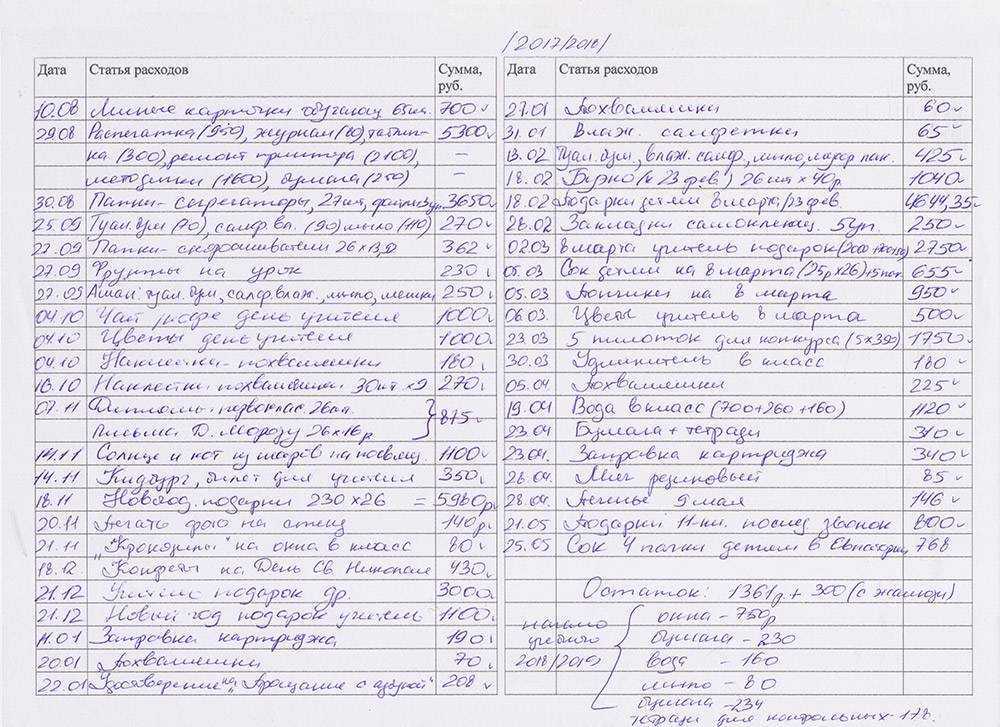 /2017/2018/
Дата Статья расходов Сумма, руб.
10.08 Личные карточки обучающ 65шт. 700
29.08 Распечатка (950), журнал (80), таблич- 5300
ка (300), ремонт принтера (2100), –
методички (1600), бумага (250) –
30.08 Папки-сегрегаторы, 27шт, файлы 3650
25.09 Туал. бум (70), салф. вл. (90) мыло (110) 270
27.09 Папки-скоросшиватели 26х13, 362
27.09 Фрукты на урок 230
27.09 туал. бум, салф. влаж., мыло, мешки 250
04.10 Чай, кофе день учителя 1000
04.10 Цветы день учителя 1000
04.10 Наклейки-похвалюшки 180
16.10 Наклейки похвалюшки 30шт х9 270
07.11 Дипломы первоклас. 26шт. 875
письма Д. Морозу 26х16р
14.11 Солнце и кот из шаров на посвящ. 1100
14.11 Кидбург, билет для учителя 350
18.11 Новогод. подарки 230х26 = 5980р
20.11 Печать фото на стенд 140р
21.11 "Крокодилы" на окна в класс 80
18.12 Конфеты на День Св. Николая 430
21.12 Учителю подарок др. 3000
21.12 Новый год подарок учителю 1100
11.01 Заправка картриджа 190
20.01 Похвалюшки 70
22.01 Удостоверение на "Прощание с азбукой" 208
Дата Статья расходов Сумма, руб.
27.01 Похвалюшки 60
31.01 Влаж. салфетки 65
13.02 Туал. бум., влаж. салф., мыло, мусор пак. 425
18.02 (к 23 фев.) 26шт х 40р 1040
18.02 Подарки детям 8 марта, 23 фев. 4644,35
28.02 Закладки самоклеющ. 5уп. 250
02.03 8 марта учитель подарок 2750
05.03 Сок детям на 8 марта (25р х 26) 655
05.03 Пончики на 8 марта 950
06.03 Цветы учитель 8 марта 500
23.03 5 пилоток для конкурса (5х350) 1750
30.03 Удлинитель в класс 180
05.04 Похвалюшки 225
19.04 Вода в класс (700+260+160) 1120
23.04 Бумага + тетради 310
23.04. Заправка картриджа 340
26.04 Мяч резиновый 85
28.04 Печенье 9 мая 146
21.05 Подарки 11-кл. послед звонок 800
25.05 Сок 4 пачки детям в Евпаторию 768
Остаток: 1361р. + 300
начало учебного 2018/2019
окна – 750р
бумага – 230
вода – 160
мыло – 80
бумага – 234
тетради для контрольных – 178.